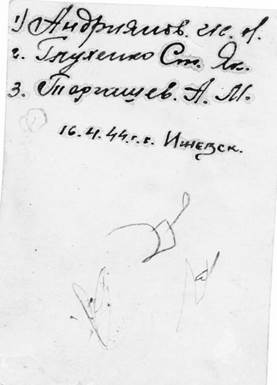 1) Андриянов. И. И.
2. Глухенко Ст. Як.
3. Торгищев. А. М.
16.4.44.г.г. Ижевск.